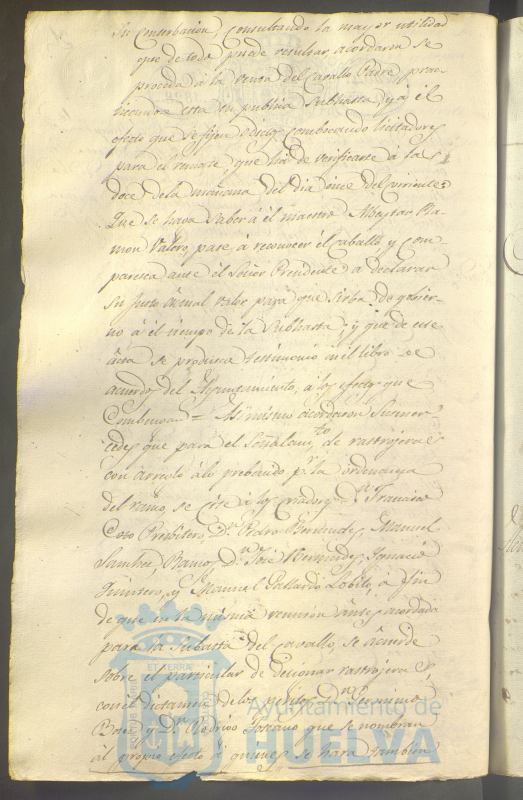 su conserbacion, consultando la mayor utilidad
que de todo puede resultar, acordaron se
proceda á la venta del Cavallo Padre, prac-
ticandose esta en publica Subhasta, y á él
efecto que se fijen edictos combocando licitadores
para el remate que há de verificarse á las
doce de la mañana del dia once del corriente=
Que se haga saber á él maestro Albeytar Ra-
mon Valero, pase á reconocer él Caballo y com-
paresca ante él Señor Presidente á declarar
su justo actual valor para que sirba de govier-
no á él tiempo de la Subhasta; y que de este
acta se produzca testimonio en él libro de
acuerdos del Ayuntamiento, á los efectos que
combengan= Asimismo acordaron Sus mer-
cedes que para el señalam.to de rastrojeras
con arreglo á lo prebenido p.r la ordenanza
del ramo, se cite á los criadores D.n Francisco
Coto Presbitero, D.n Pedro Bermudez, Manuel
Sanchez Ramos, D.n José Bermudez, Ignacio
Quintero, y Manuel Gallardo Lobito, á fin
de que en la misma reunion antes acordada
para la Subasta del cavallo, se acuerde
sobre él particular de rastrojeras,
con él dictamen de los peritos D.n
y D.n Rodrigo que se nombran
al propio efecto á quienes se hará tambien
Ayuntamiento de
HUELVA